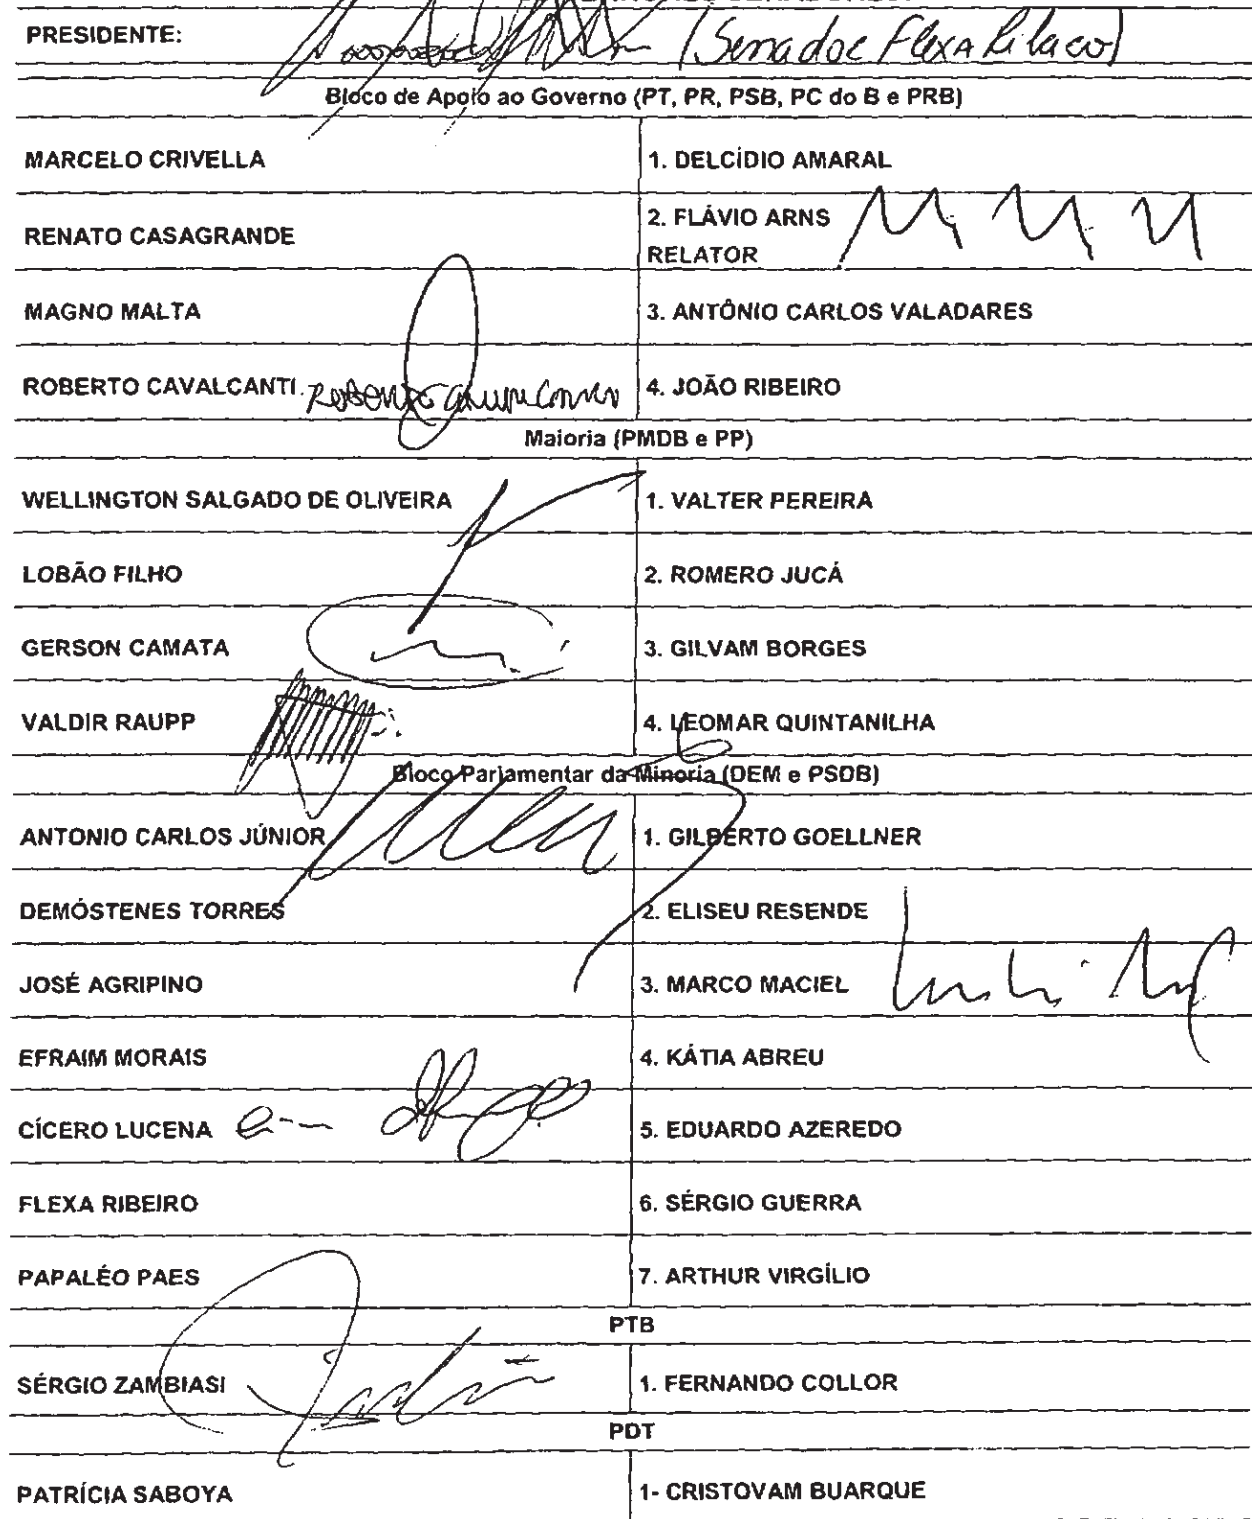 PRESIDENTE: (Senador Flexa Ribeiro)
Bloco de Apoio ao Governo (PT, PR, PSB, PC do B e PRB)
MARCELO CRIVELLA 1. DELCÍDIO AMARAL
RENATO CASAGRANDE 2. FLÁVIO ARNS
RELATOR
MAGNO MALTA 3. ANTÔNIO CARLOS VALADARES
ROBERTO CAVALCANTI. 4. JOÃO RIBEIRO
Maioria (PMDB e PP)
WELLINGTON SALGADO DE OLIVEIRA 1. VALTER PEREIRA
LOBÃO FILHO 2. ROMERO JUCÁ
GERSON CAMATA 3. GILVAM BORGES
VALDIR RAUPP 4. LEOMAR QUINTANILHA
Bloco Parlamentar da Minoria (DEM e PSDB)
ANTONIO CARLOS JÚNIOR 1. GILBERTO GOELLNER
DEMÓSTENES TORRES 2. ELISEU RESENDE
JOSÉ AGRIPINO 3. MARCO MACIEL
EFRAIM MORAIS 4. KÁTIA ABREU
CÍCERO LUCENA 5. EDUARDO AZEREDO
FLEXA RIBEIRO 6. SÉRGIO GUERRA
PAPALÉO PAES 7. ARTHUR VIRGÍLIO
PTB
SÉRGIO ZAMBIASI 1. FERNANDO COLLOR
PDT
PATRÍCIA SABOYA 1- CRISTOVAM BUARQUE